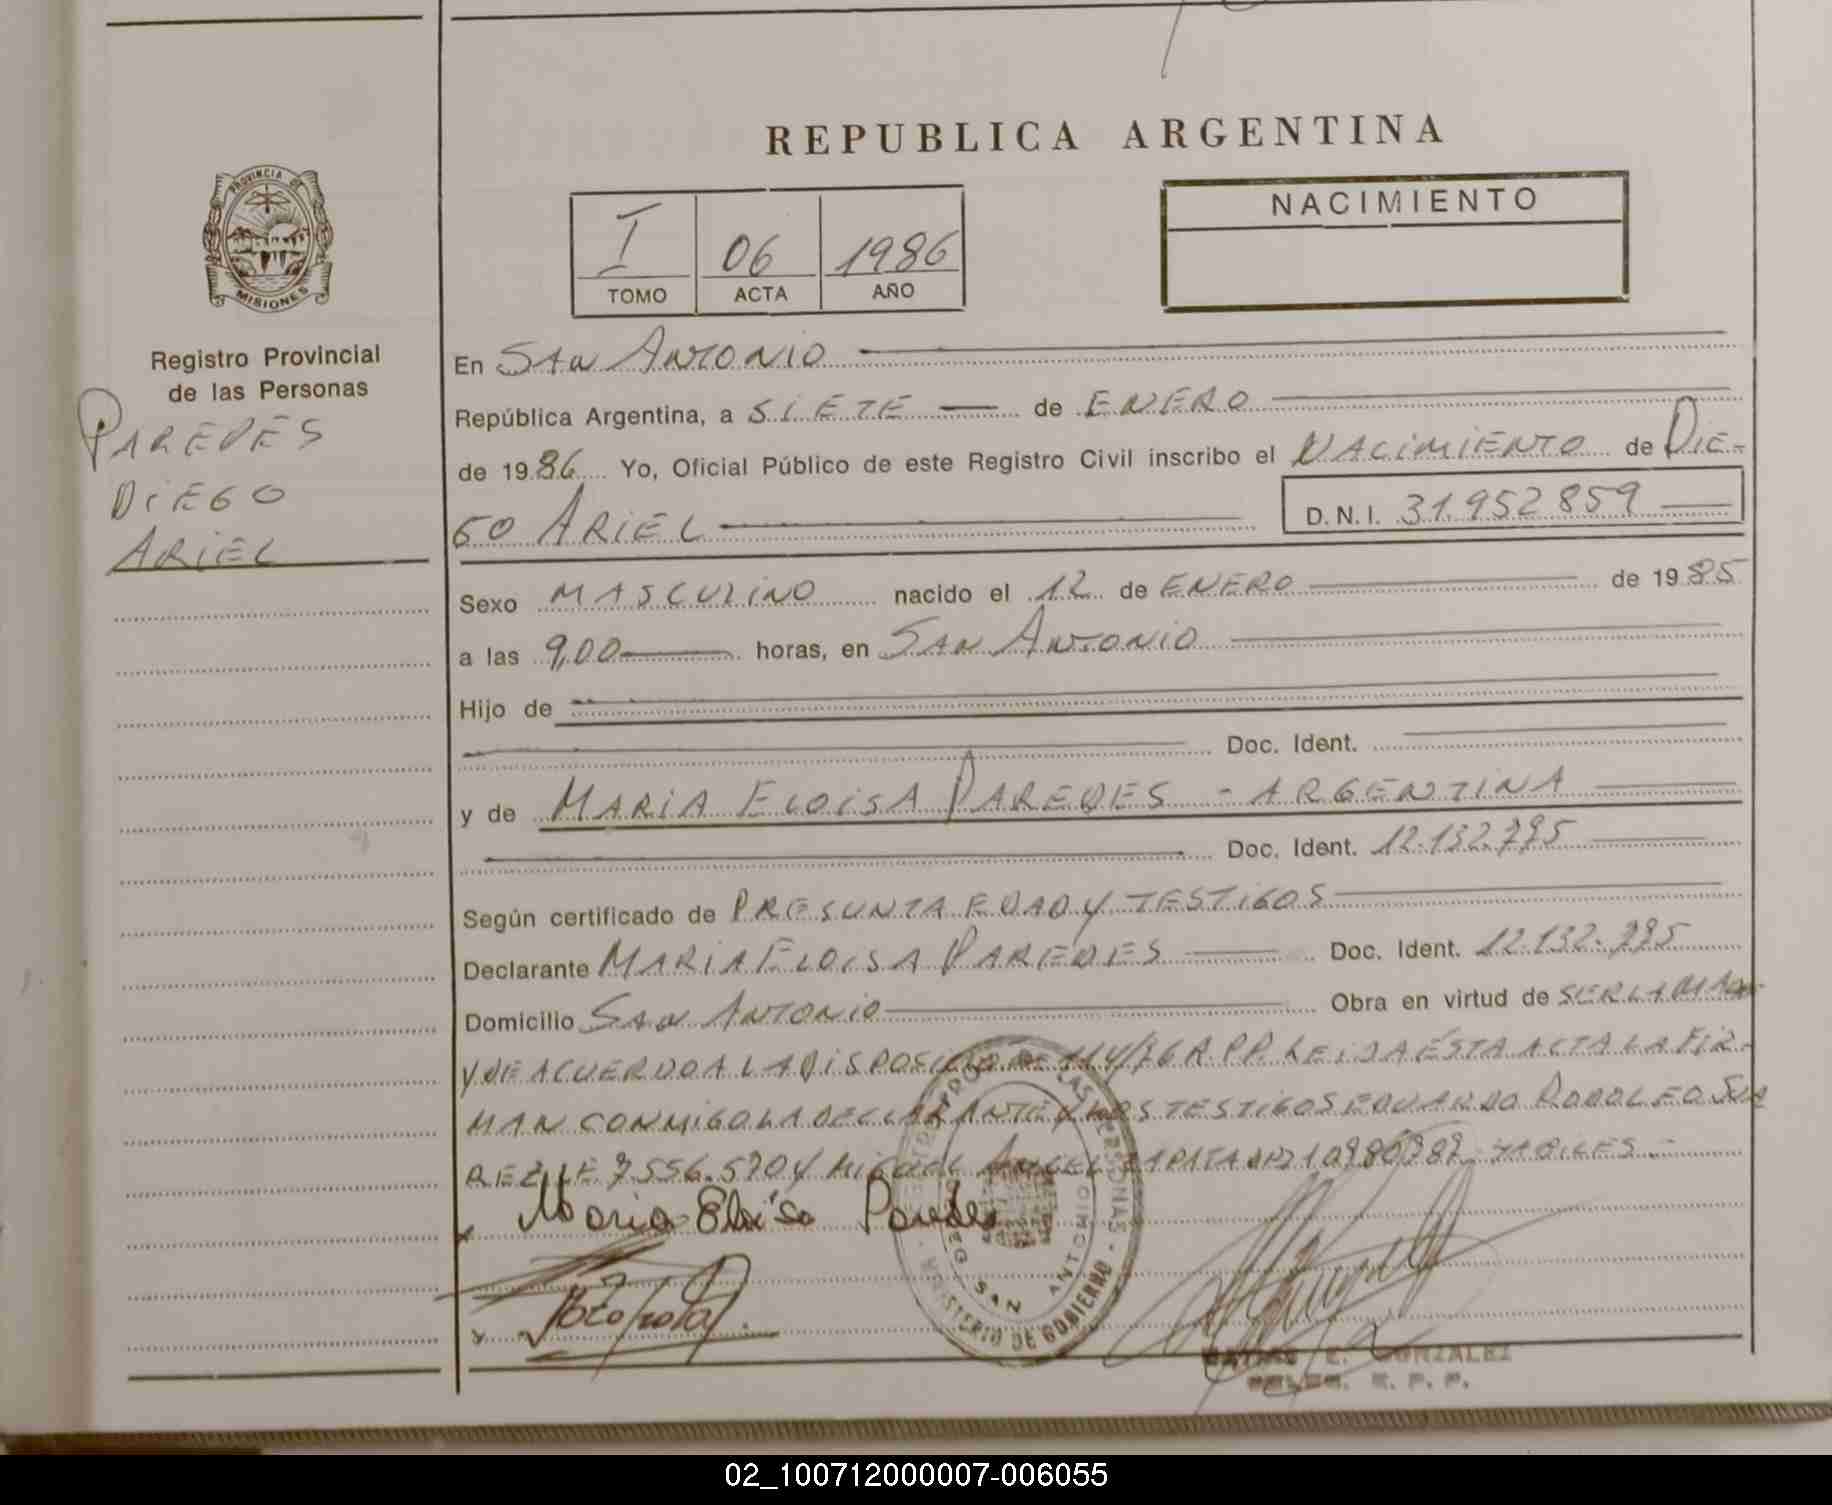 REPUBLICA ARGENTINA
PROVINCIA DE
MISIONES
Registro Provincial
de las Personas
PAREDES
DIEGO
ARIEL
I 06 1986
TOMO ACTA AÑO
NACIMIENTO
En SAN ANTONIO
República Argentina, a SIETE de ENERO
de 1986 Yo, Oficial Público de este Registro Civil inscribo el NACIMIENTO de DIE-
GO ARIEL D.N.I. 31.952859
Sexo MASCULINO nacido el 12 de ENERO de 1985
a las 9,00 horas, en SAN ANTONIO
Hijo de
Doc. Ident.
y de MARIA ELOISA PAREDES - ARGENTINA
Doc. Ident. 12.132.795
Según certificado de PRESUNTA EDAD Y TESTIGOS
Declarante MARIA ELOISA PAREDES Doc. Ident. 12.132.795
Domicilio SAN ANTONIO Obra en virtud de SER LA MADRE
Y DE ACUERDO A LA DISPOSICION 114/76 R.P.P. LEIDA ÉSTA ACTA LA FIR-
MAN CONMIGO LA DECLARANTE Y LOS TESTIGOS EDUARDO RODOLFO SUA
REZ LE 7.556.570 Y MIGUEL ANGEL ZAPATA HABILES.-
Maria Eloisa Paredes
REG SAN ANTONIO
MINISTERIO DE GOBIERNO
E. GONZALEZ
R. P. P.
02_100712000007-006055